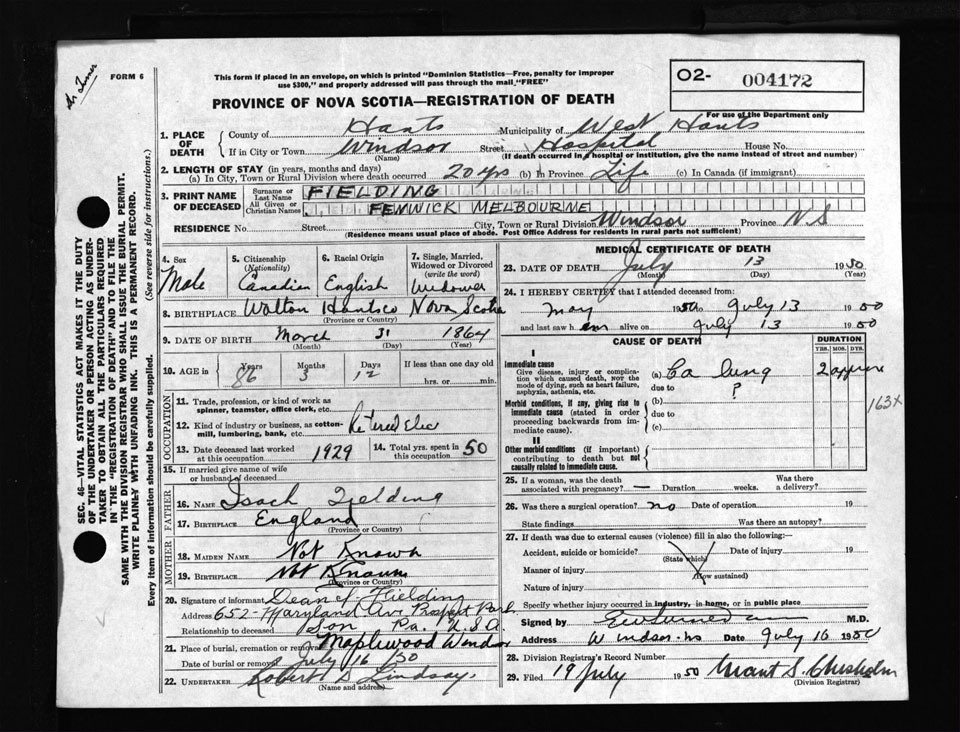 Dr Turner
FORM 6
This form if placed in an envelope, on which is printed "Dominion Statistics—Free, penalty for improper
use $300," and properly addressed will pass through the mail "FREE"
PROVINCE OF NOVA SCOTIA—REGISTRATION OF DEATH
O2- 004172
For use of the Department only
1. PLACE OF DEATH
County of Hants Municipality of West Hants
If in City or Town Windsor Street Hospital House No.
(Name) (If death occurred in a hospital or institution, give the name instead of street and number)
2. LENGTH OF STAY (in years, months and days)
(a) In City, Town or Rural Division where death occurred 20 yrs (b) In Province Life (c) In Canada (if immigrant)
3. PRINT NAME OF DECEASED
Surname or Last Name FIELDING
All Given or Christian Names FENWICK MELBOURNE
RESIDENCE No. Street City, Town or Rural Division Windsor Province N.S
(Residence means usual place of abode. Post Office Address for residents in rural parts not sufficient)
4. Sex Male
5. Citizenship (Nationality) Canadian
6. Racial Origin English
7. Single, Married, Widowed or Divorced (write the word) Widower
8. BIRTHPLACE Walton Hants co Nova Scotia
(Province or Country)
9. DATE OF BIRTH March 31 1864
(Month) (Day) (Year)
10. AGE in Years 86 Months 3 Days 12 If less than one day old
hrs. or min.
OCCUPATION
11. Trade, profession, or kind of work as
spinner, teamster, office clerk, etc.
12. Kind of industry or business, as cotton-
mill, lumbering, bank, etc. Retired Elec
13. Date deceased last worked at this occupation 1929
14. Total yrs. spent in this occupation 50
15. If married give name of wife
or husband of deceased
FATHER
16. NAME Isach Fielding
17. BIRTHPLACE England
(Province or Country)
MOTHER
18. MAIDEN NAME Not Known
19. BIRTHPLACE Not Known
(Province or Country)
20. Signature of informant Dean F Fielding
Address 652-Maryland Ave Prospect Park,
Relationship to deceased Son Pa. U.S.A.
21. Place of burial, cremation or removal Maplewood Windsor
Date of burial or removal July 16 50
22. UNDERTAKER Robert D Lindsay.
(Name and address)
MEDICAL CERTIFICATE OF DEATH
23. DATE OF DEATH July 13 1950
(Month) (Day) (Year)
24. I HEREBY CERTIFY that I attended deceased from:
May 1950 to July 13 1950
and last saw him alive on July 13 1950
CAUSE OF DEATH
DURATION
YRS. MOS. DYS.
I
Immediate cause
Give disease, injury or complica-
tion which caused death, NOT the
mode of dying, such as heart failure,
asphyxia, asthenia, etc.
(a) Ca lung 2 approx
due to ?
Morbid conditions, if any, giving rise to
immediate cause (stated in order
proceeding backwards from im-
mediate cause).
(b)
due to
(c)
163X
II
Other morbid conditions (if important)
contributing to death but not
causally related to immediate cause.
25. If a woman, was the death
associated with pregnancy? — Duration weeks. Was there
a delivery?
26. Was there a surgical operation? no Date of operation 19
State findings Was there an autopsy?
27. If death was due to external causes (violence) fill in also the following:
Accident, suicide or homicide? Date of injury 19
(State which)
Manner of injury
(How sustained)
Nature of injury
Specify whether injury occurred in industry, in home, or in public place
Signed by M.D.
Address Windsor NS Date July 16 1950
28. Division Registrar's Record Number
29. Filed 19 July 1950 Grant S. Chisholm
(Division Registrar)
SEC. 46—VITAL STATISTICS ACT MAKES IT THE DUTY
OF THE UNDERTAKER OR PERSON ACTING AS UNDER-
TAKER TO OBTAIN ALL THE PARTICULARS REQUIRED
IN THE "REGISTRATION OF DEATH" AND TO FILE THE
SAME WITH THE DIVISION REGISTRAR WHO SHALL ISSUE THE BURIAL PERMIT.
WRITE PLAINLY WITH UNFADING INK. THIS IS A PERMANENT RECORD.
Every item of information should be carefully supplied. (See reverse side for instructions.)